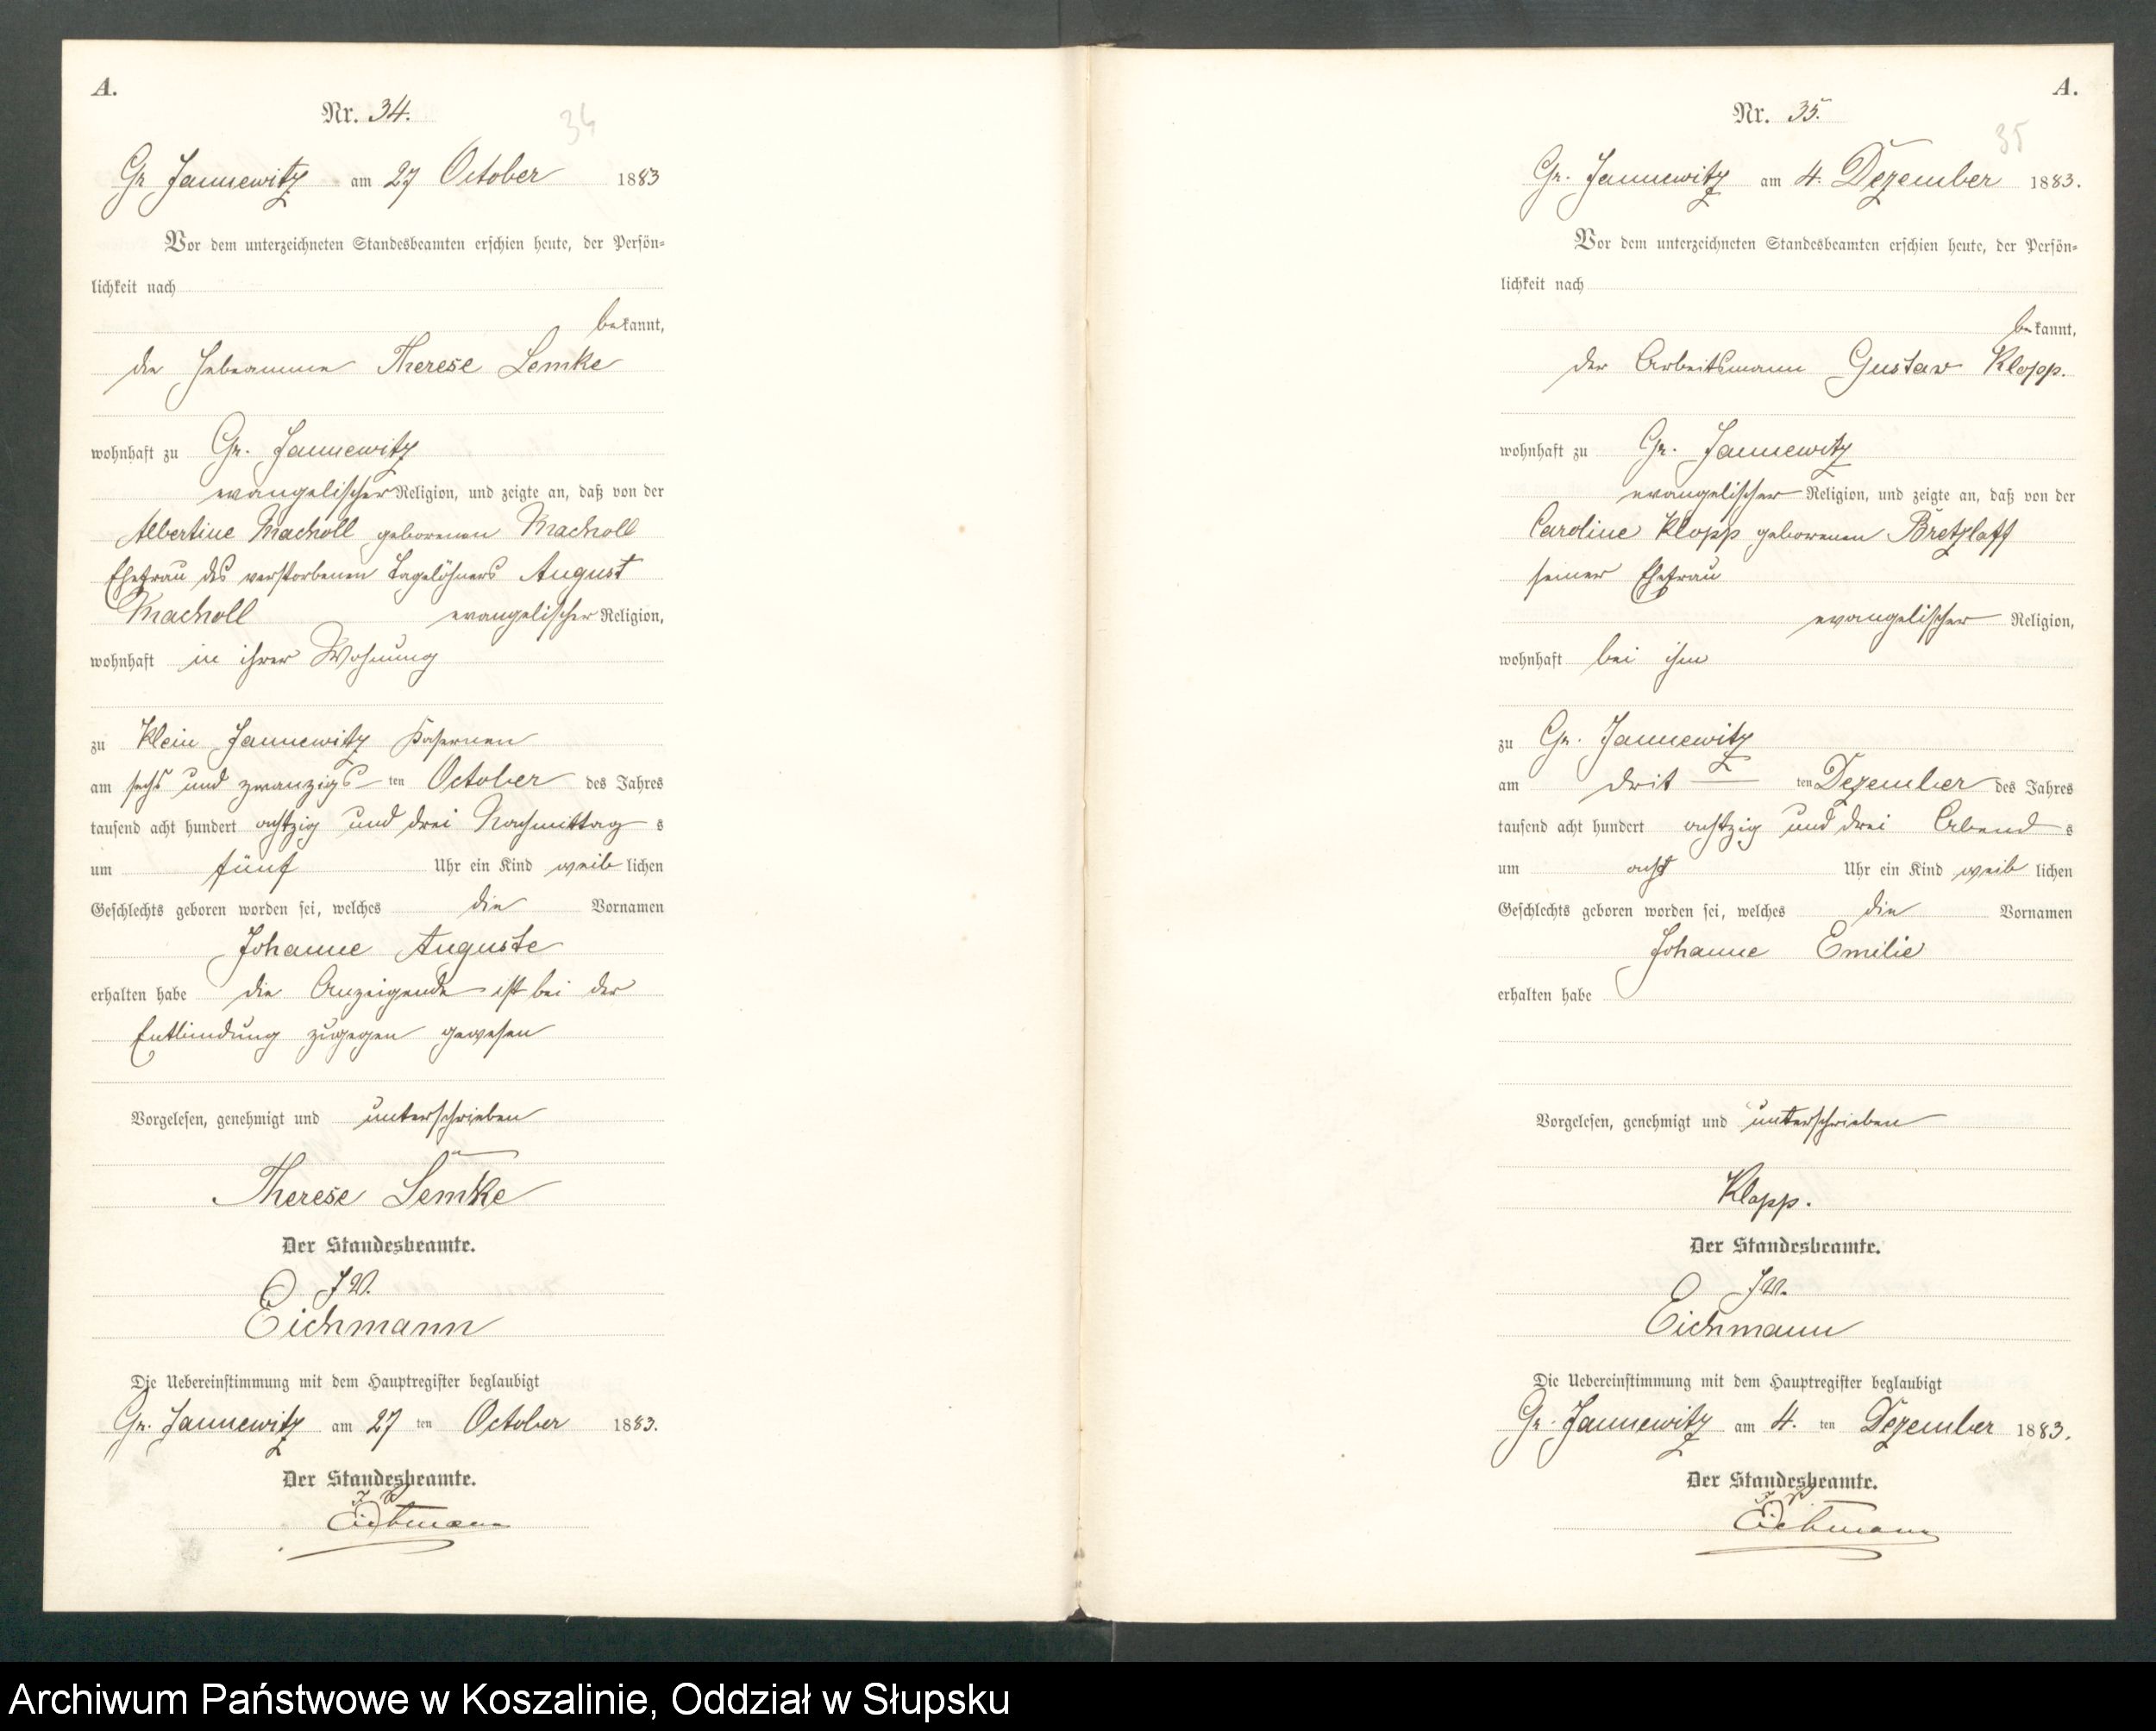 A.
Nr. 34.
34
Gr Jannewitz am 27 October 1883
Vor dem unterzeichneten Standesbeamten erschien heute, der Persön-
lichkeit nach
bekannt,
die Hebeamme Therese Lemke
wohnhaft zu Gr. Jannewitz
evangelischer Religion, und zeigte an, daß von der
Albertine Macholl geborenen Macholl
Ehefrau des verstorbenen Tagelöhners August
Macholl evangelischer Religion,
wohnhaft in ihrer Wohnung
zu Klein Jannewitz
am sechs und zwanzigs ten October des Jahres
tausend acht hundert achtzig und drei Nachmittag s
um fünf Uhr ein Kind weib lichen
Geschlechts geboren worden sei, welches die Vornamen
Johanne Auguste
erhalten habe die Anzeigende ist bei der
Entbindung zugegen gewesen
Vorgelesen, genehmigt und unterschrieben
Therese Lemke
Der Standesbeamte.
J.V.
Eichmann
Die Uebereinstimmung mit dem Hauptregister beglaubigt
Gr. Jannewitz am 27 ten October 1883.
Der Standesbeamte.
J V
Eichmann
A.
Nr. 35.
35
Gr. Jannewitz am 4. Dezember 1883.
Vor dem unterzeichneten Standesbeamten erschien heute, der Persön-
lichkeit nach
bekannt,
der Arbeitsmann Gustav Klopp.
wohnhaft zu Gr. Jannewitz
evangelischer Religion, und zeigte an, daß von der
Caroline Klopp geborenen Bretzlaff
seiner Ehefrau
evangelischer Religion,
wohnhaft bei ihm
zu Gr. Jannewitz
am drit ten Dezember des Jahres
tausend acht hundert achtzig und drei Abend s
um acht Uhr ein Kind weib lichen
Geschlechts geboren worden sei, welches die Vornamen
Johanne Emilie
erhalten habe
Vorgelesen, genehmigt und unterschrieben
Klopp.
Der Standesbeamte.
J.V.
Eichmann
Die Uebereinstimmung mit dem Hauptregister beglaubigt
Gr. Jannewitz am 4. ten Dezember 1883.
Der Standesbeamte.
J V
Eichmann
Archiwum Państwowe w Koszalinie, Oddział w Słupsku